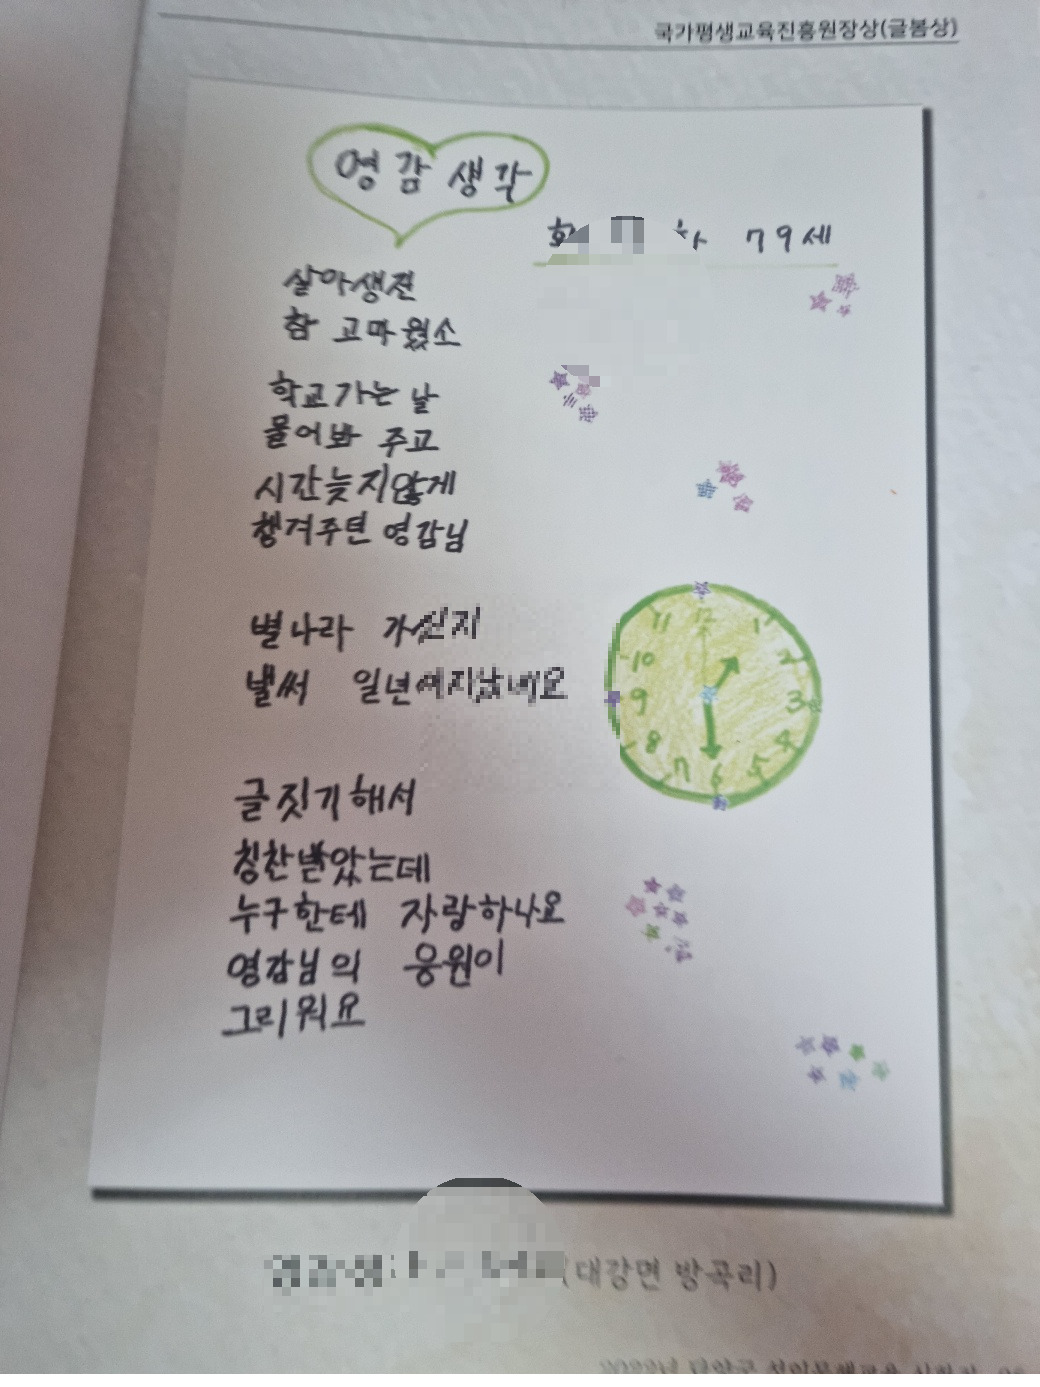 국가평생교육진흥원장상(글봄상)
영감 생각
79세
살아생전
참 고마웠소
학교가는 날
물어봐 주고
시간늦지않게
챙겨주던 영감님
별나라 가신지
벌써 일년이지났네요
글짓기해서
칭찬받았는데
누구한테 자랑하나요
영감님의 응원이
그리워요
11 12 1
10 2
9 3
8 4
7 6 5
(대강면 방곡리)